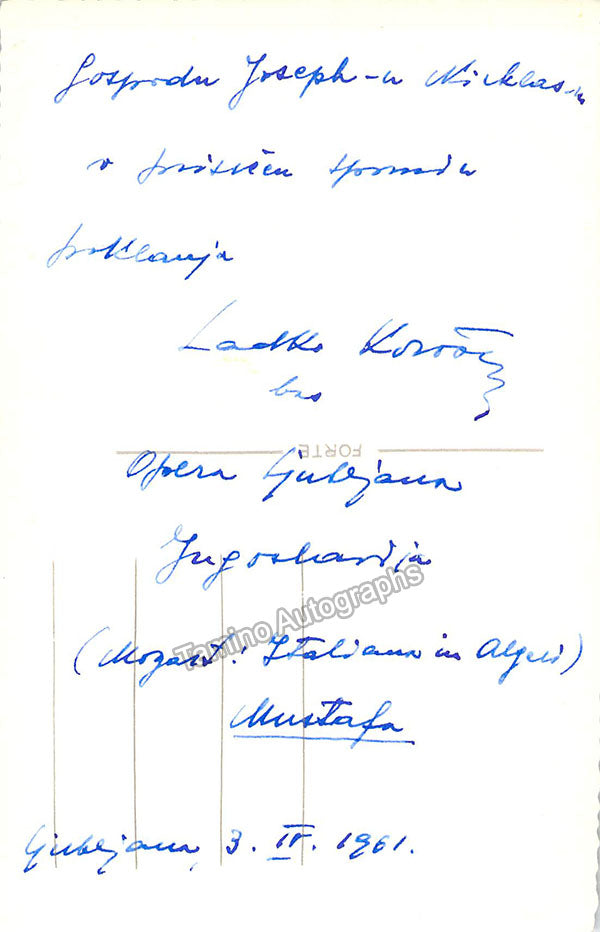 Gospodu Joseph-u Nicklas-u
v prisrčen spomin
poklanja
Ladko Korošec
bas
FORTE
Opera Ljubljana
Jugoslavija
Tamino Autographs
(Mozart: Italiana in Algeri)
Mustafa
Ljubljana, 3. IV. 1961.